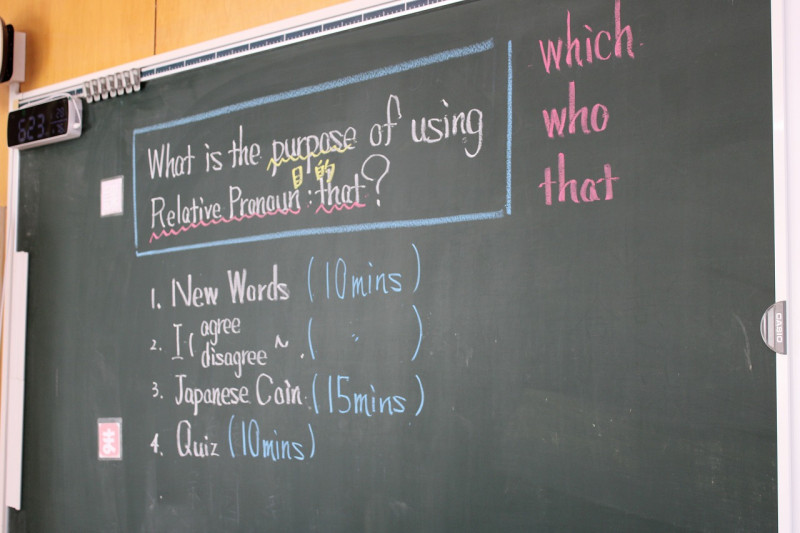 What is the purpose of using
目的
Relative Pronoun : that?
which
who
that
1. New Words (10mins)
2. I ( agree
disagree ~. ( )
3. Japanese Coin (15mins)
4. Quiz (10mins)
CASIO